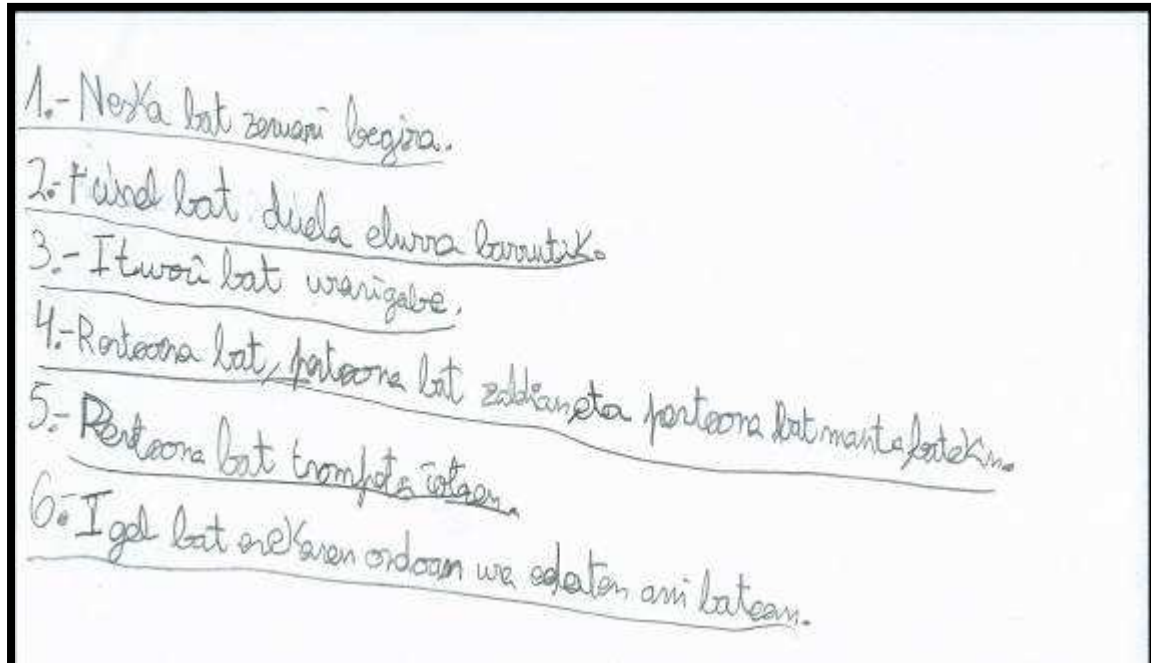 1.- Neska bat zeruari begira.
2.- bat duela elurra barrutik.
3.- Iturri bat urarigabe.
4.- bat, pertsona bat zaldian eta pertsona bat manta batekin.
5.- Pertsona bat trompeta
6.- Igel bat errekaren ondoan ura edaten ari batean.